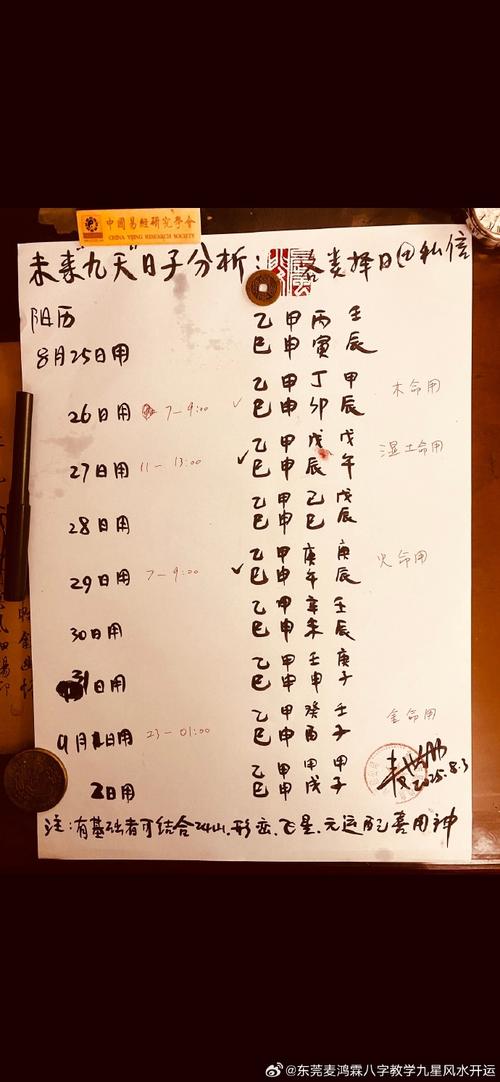 中國易經研究學會
CHINA YIJING RESEARCH SOCIETY
未来"九天"日子分析: 麦择日@私信
阳历
乙 甲 丙 壬
8月25日用 巳 申 寅 辰
乙 甲 丁 甲 木命用
26日用 7-9:00 ✓ 巳 申 卯 辰
乙 甲 戊 戊 湿土命用
27日用 11-13:00 ✓ 巳 申 辰 午
乙 甲 己 戊
28日用 巳 申 巳 辰
乙 甲 庚 庚 火命用
29日用 7-9:00 ✓ 巳 申 午 辰
乙 甲 辛 壬
30日用 巳 申 未 辰
乙 甲 壬 庚
31日用 巳 申 申 子
乙 甲 癸 壬 金命用
9月1日用 23-01:00 巳 申 酉 子
乙 甲 甲 甲
2日用 巳 申 戌 子
2025.8.3
注:有基础者可结合24山.形峦.飞星.元运配喜用神
@东莞麦鸿霖八字教学九星风水开运